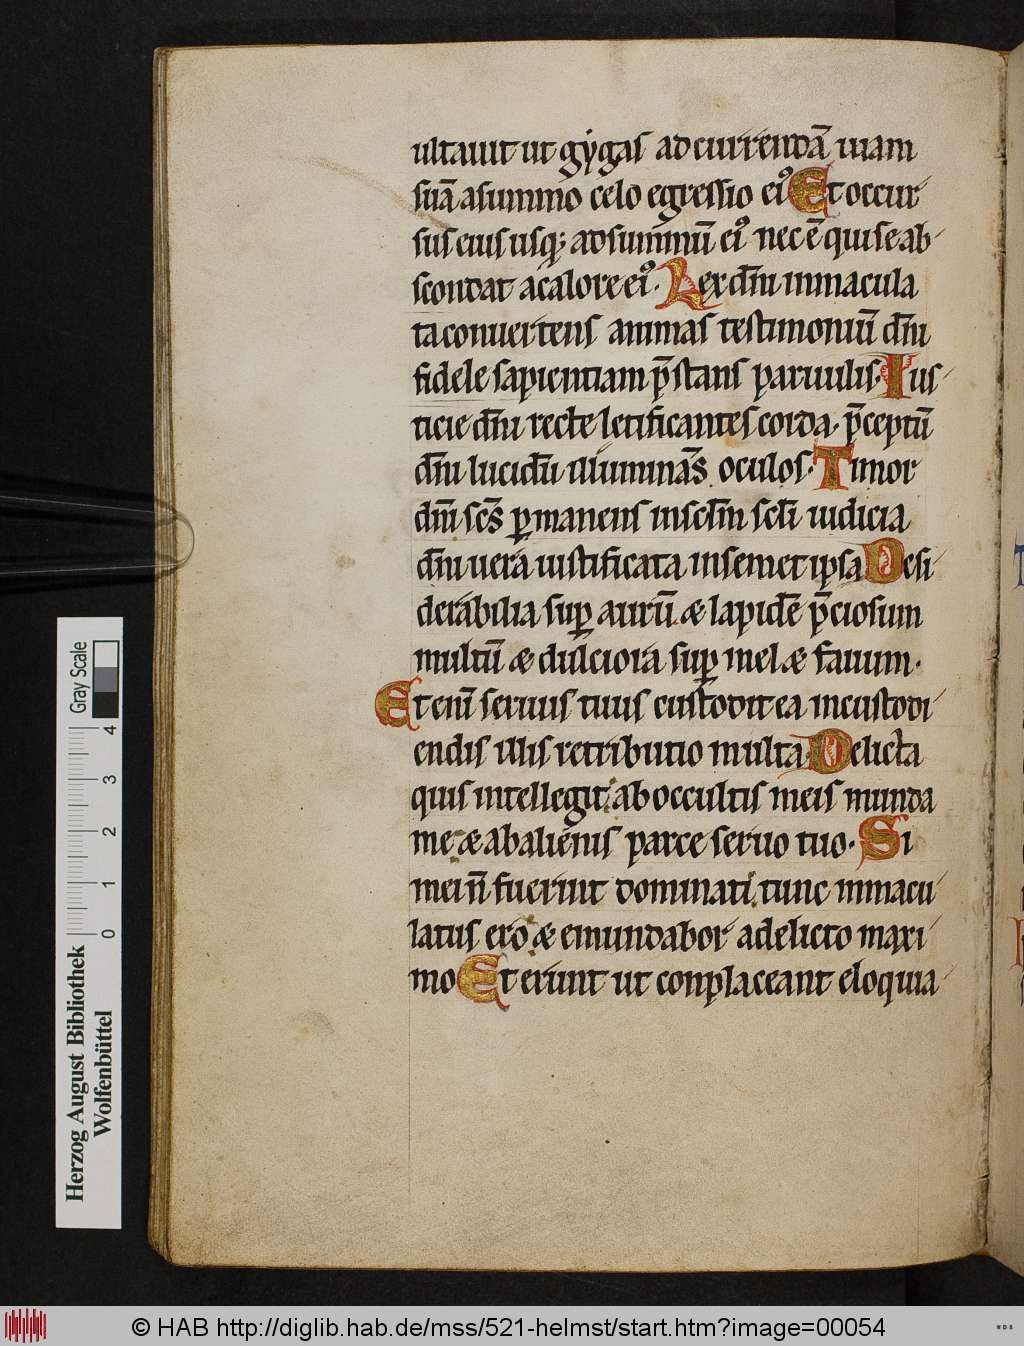 ultauit ut gẏgas ad currendā uiam
suā a summo celo egressio eiꝰ Et occur
sus eius usqꝫ ad summū eiꝰ nec ē qui se ab
scondat a calore eiꝰ. Lex dn̄i inmacula
ta conuertens animas testimoniū dn̄i
fidele sapientiam p̄stans paruulis. Ius
ticie dn̄i recte letificantes corda. p̄ceptū
dn̄i lucidū illuminās oculos. Timor
dn̄i sc̄s ꝑmanens in sclm̄ scli̅ iudicia
dn̄i uera iustificata in semet ipsa Desi
derabilia suꝑ aurū æ lapidē p̄ciosum
multū æ dulciora suꝑ mel æ fauum.
Et enī seruus tuus custodit ea in custodi
endis illis retributio multa. Delicta
quis intellegit ab occultis meis munda
me æ ab alienis parce seruo tuo. Si
mei n̄ fuerint dominati tunc inmacu
latus ero æ emundabor a delicto maxi
mo Et erunt ut conplaceant eloquia
Gray Scale
0 1 2 3 4
Herzog August Bibliothek
Wolfenbüttel
© HAB http://diglib.hab.de/mss/521-helmst/start.htm?image=00054